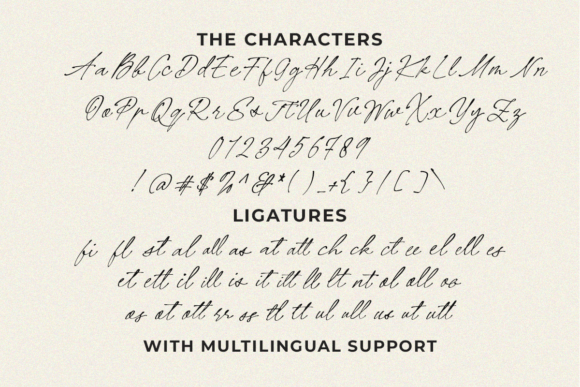 THE CHARACTERS
Aa Bb Cc Dd Ee Ff Gg Hh Ii Jj Kk Ll Mm Nn
Oo Pp Qq Rr Ss Tt Uu Vv Ww Xx Yy Zz
0123456789
! @ # $ % ^ & * ( ) _ + { } | [ ] \
LIGATURES
fi fl st al all as at att ch ck ct ee el ell es
et ett il ill is it itt ll lt nt ol oll oo
os ot ott rr ss tl tt ul ull us ut utt
WITH MULTILINGUAL SUPPORT